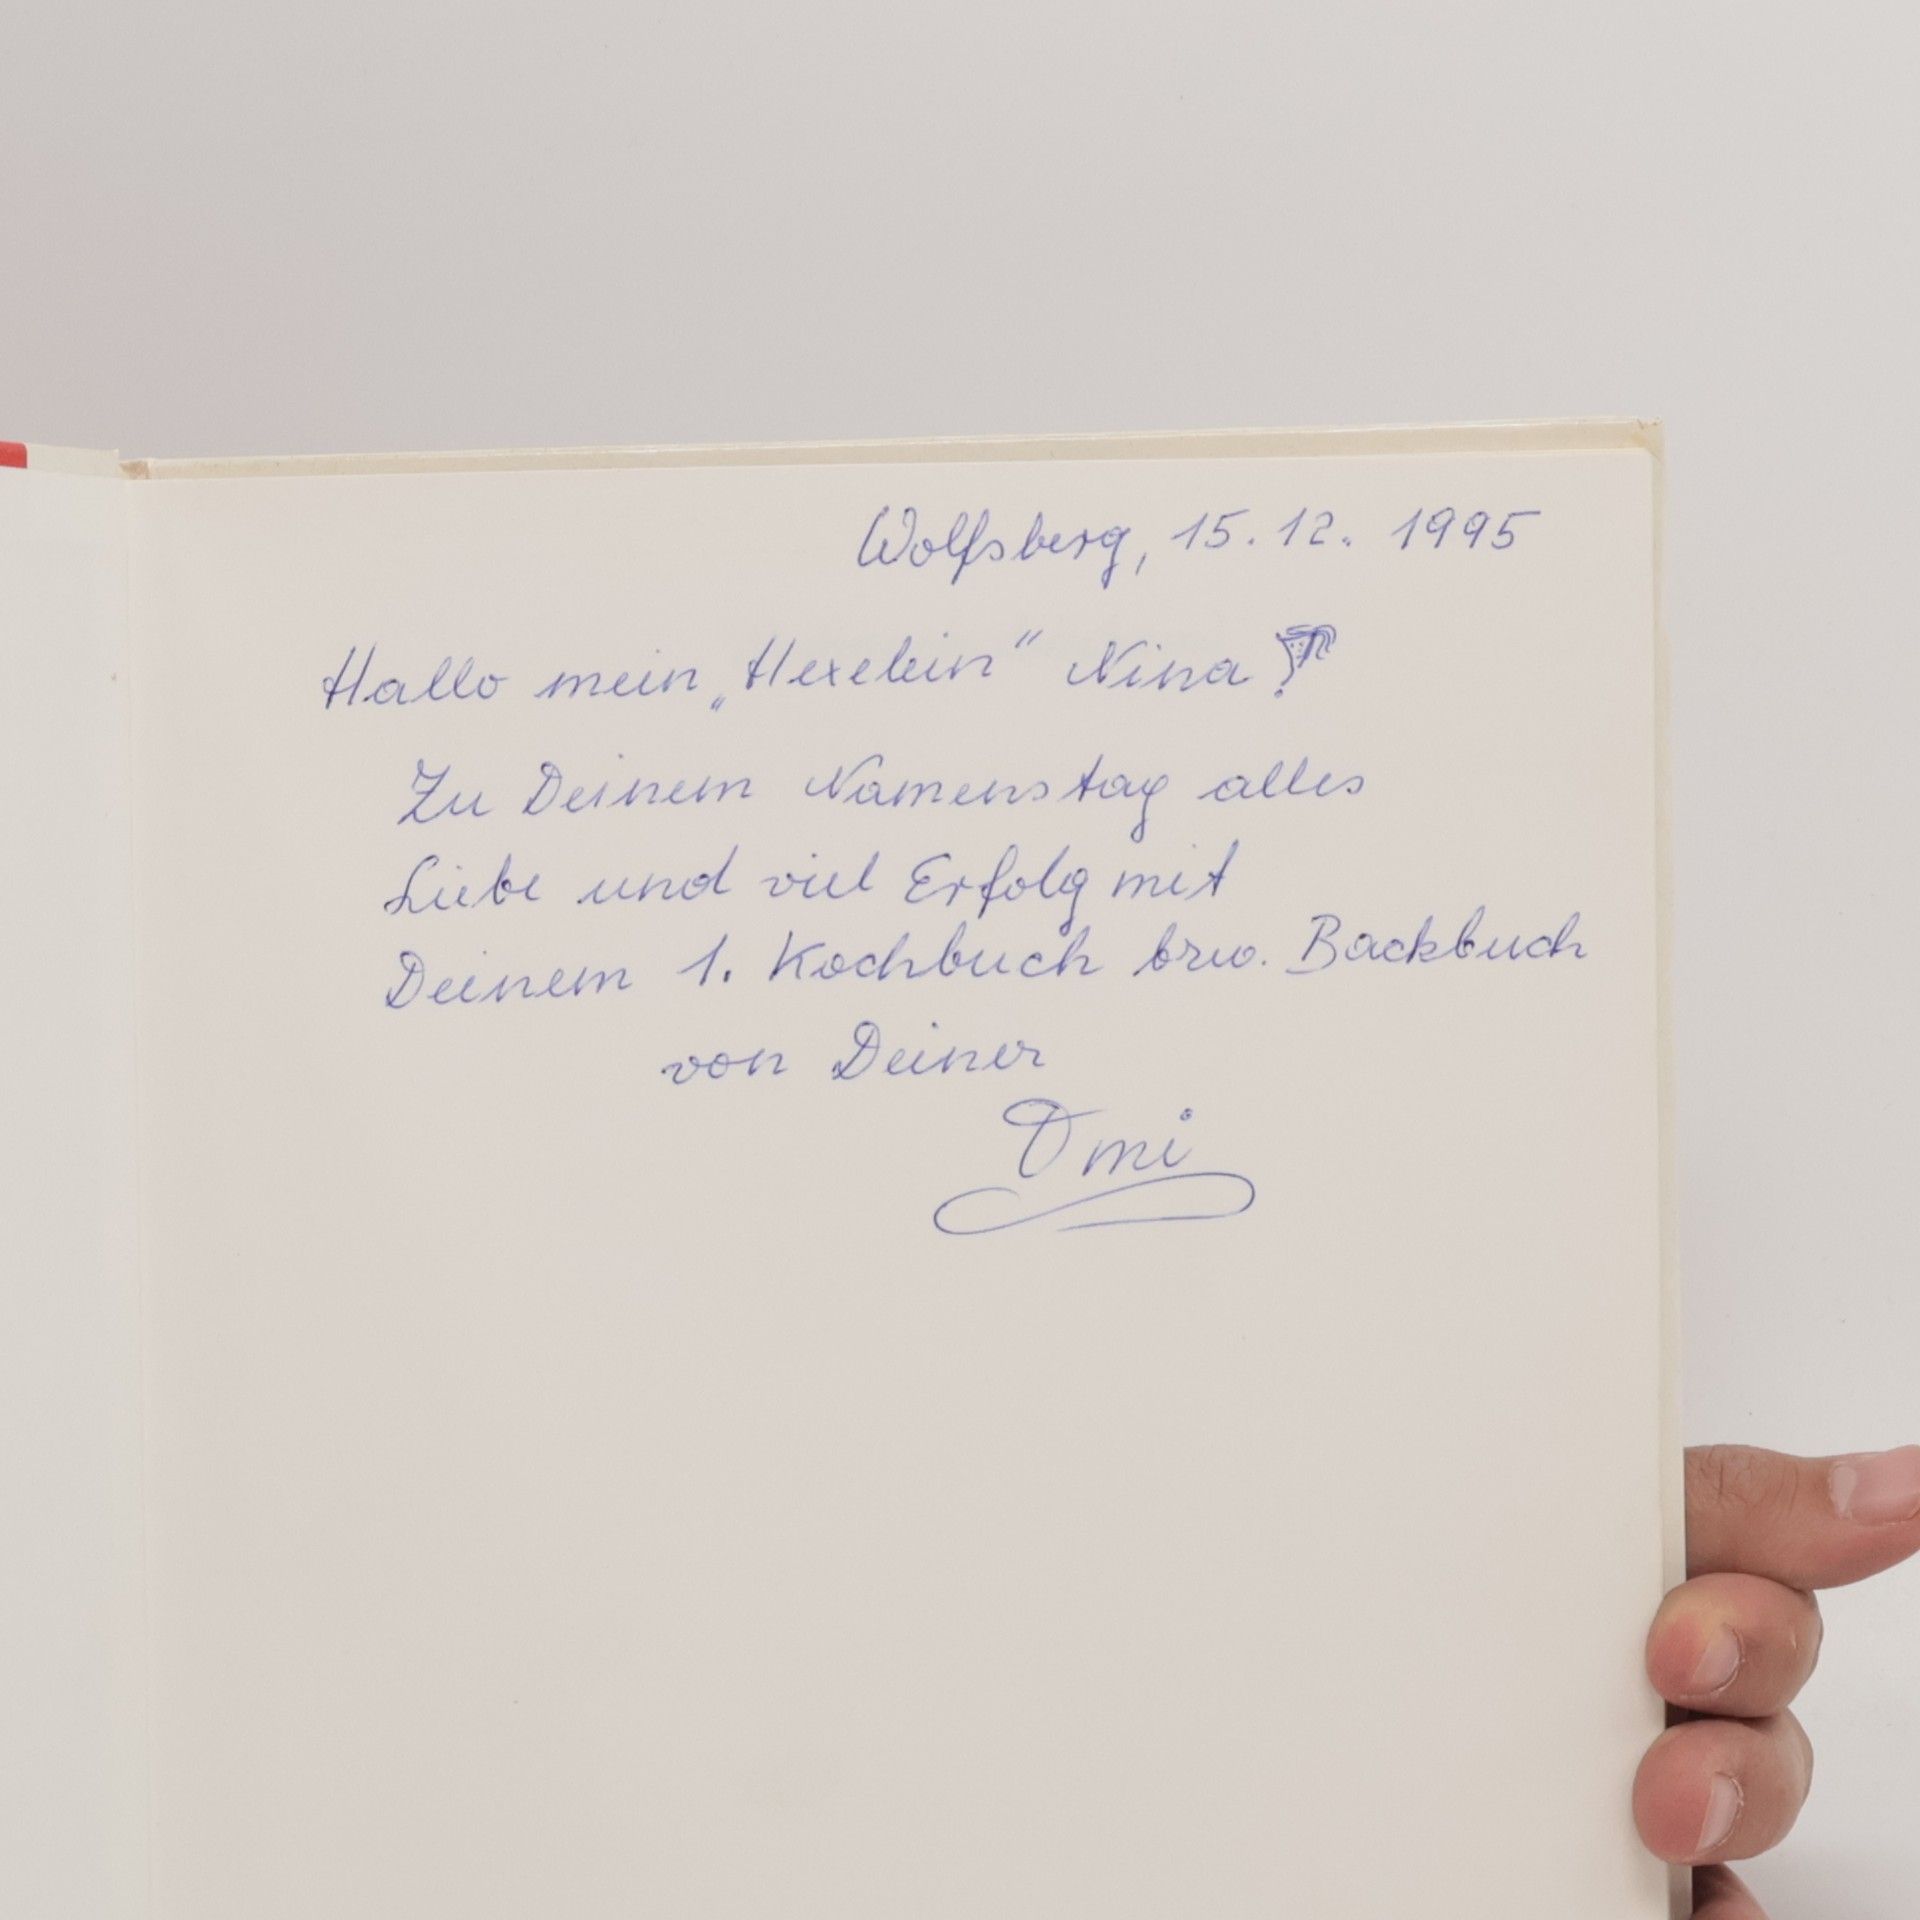 Wolfsberg, 15.12. 1995
Hallo mein „Hexelein“ Nina!
Zu Deinem Namenstag alles
Liebe und viel Erfolg mit
Deinem 1. Kochbuch bzw. Backbuch
von Deiner
Omi